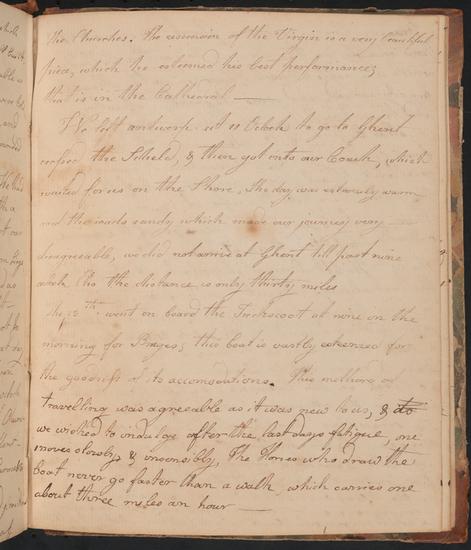 the Churches. The assension of the Virgin is a very beautiful
piece, which he esteemed his best performance;
that is in the Cathedral —
We left antwerp at 11 Oclock to go to Ghent
crossed the Scheld, & then got into our Coach, which
waited for us on the Shore, the day was extremely warm
and the roads sandy which made our journey very
disagreeable, we did not arrive at Ghent till past nine
oclock tho the distance is only thirty miles
the 15th went on board the Treckscoot at nine on the
morning for Bruges; this boat is vastly esteemed for
the goodness of its accomodations. This method of
travelling was agreeable as it was new to us, & do
we wished to indulge after the last days fatigue, one
moves slowly & insensibly, The Horses who draw the
boat never go faster than a walk which carries one
about three miles an hour —